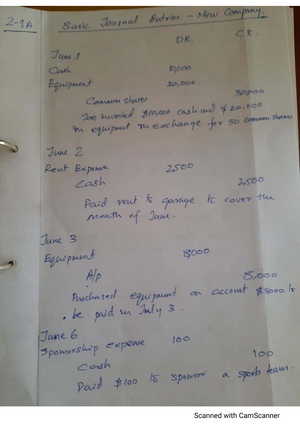 2-1A
Basic Journal Entries - New Company
DR. CR.
June 1
Cash 10,000
Equipment 20,000
Common shares 30,000
Joe Invested $10,000 cash and $20,000
in equipment in exchange for 50 common shares
June 2
Rent Expense 2,500
Cash 2,500
Paid rent to garage to cover the
month of June.
June 3
Equipment 8000
A/p 8,000
Purchased equipment on account $8000 to
be paid in July 3.
June 6
Sponsorship expense 100
Cash 100
Paid $100 to sponsor a sports team.
Scanned with CamScanner